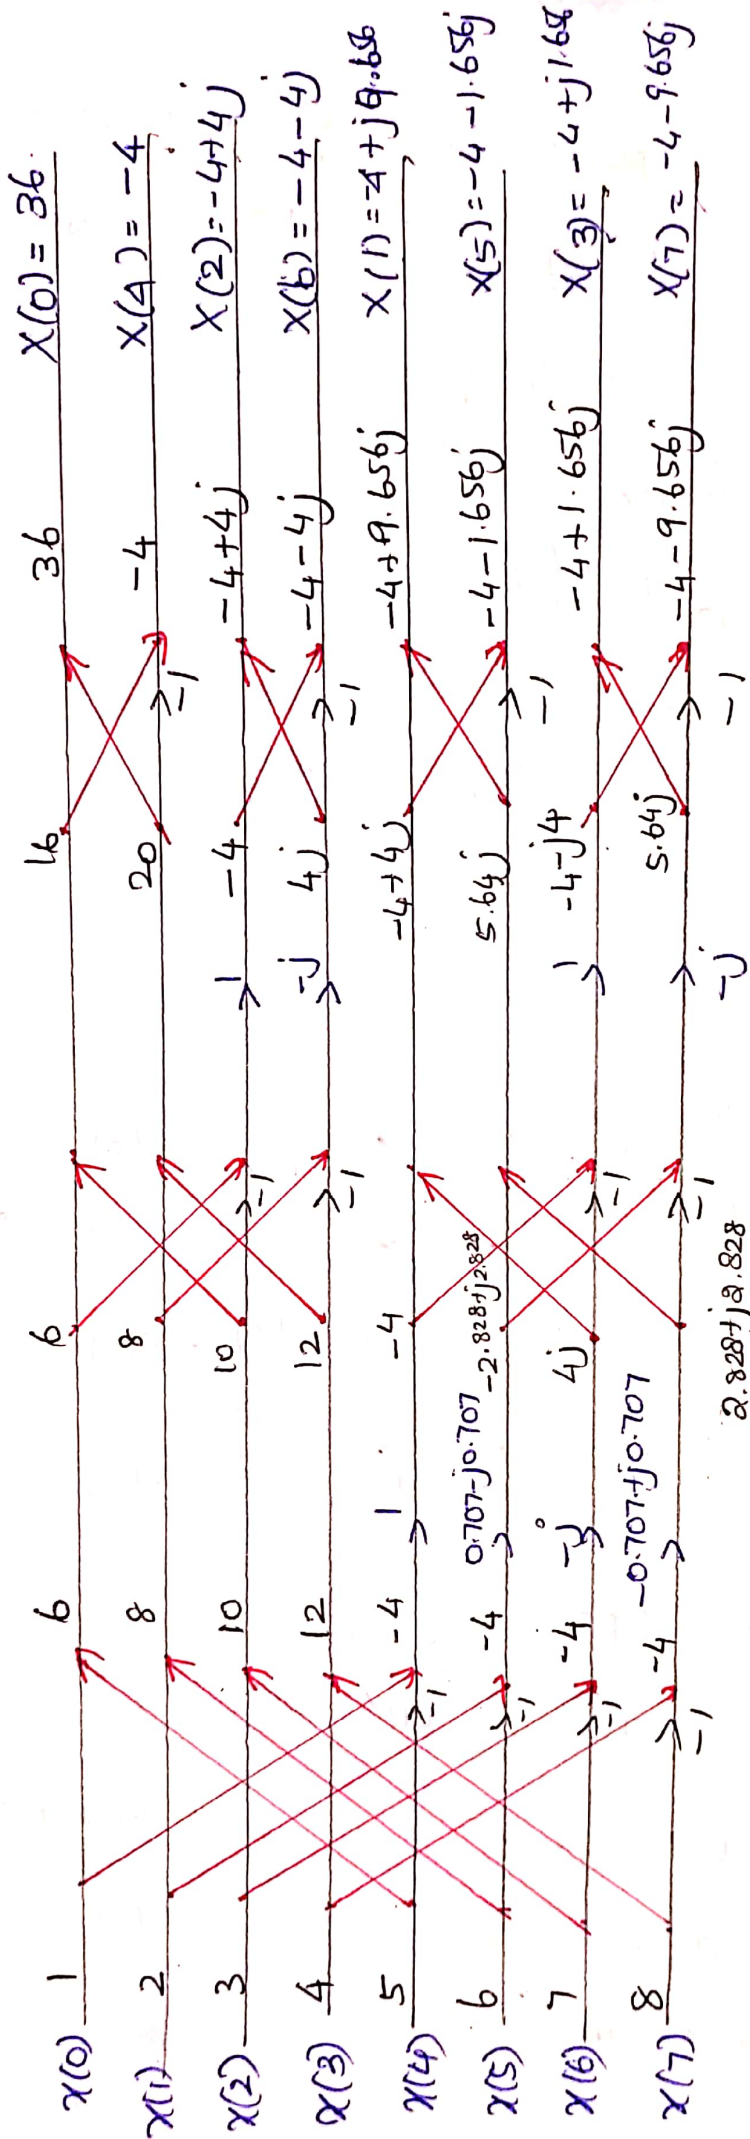 x(0) 1 6 6 16 36 X(0) = 36.
x(1) 2 8 8 20 -1 -4 X(4) = -4
x(2) 3 10 10 -1 1 -4 -4+4j X(2) = -4+4j
x(3) 4 12 12 -1 -j 4j -1 -4-4j X(6) = -4-4j
x(4) 5 -1 -4 1 -4 -4+4j -4+9.656j X(1) = -4+j9.656
x(5) 6 -1 -4 0.707-j0.707 -2.828+j2.828 5.64j -1 -4-1.656j X(5) = -4-1.656j
x(6) 7 -1 -4 -j 4j -1 1 -4-j4 -4+1.656j X(3) = -4+j1.656
x(7) 8 -1 -4 -0.707+j0.707 2.828+j2.828 -1 -j 5.64j -1 -4-9.656j X(7) = -4-9.656j